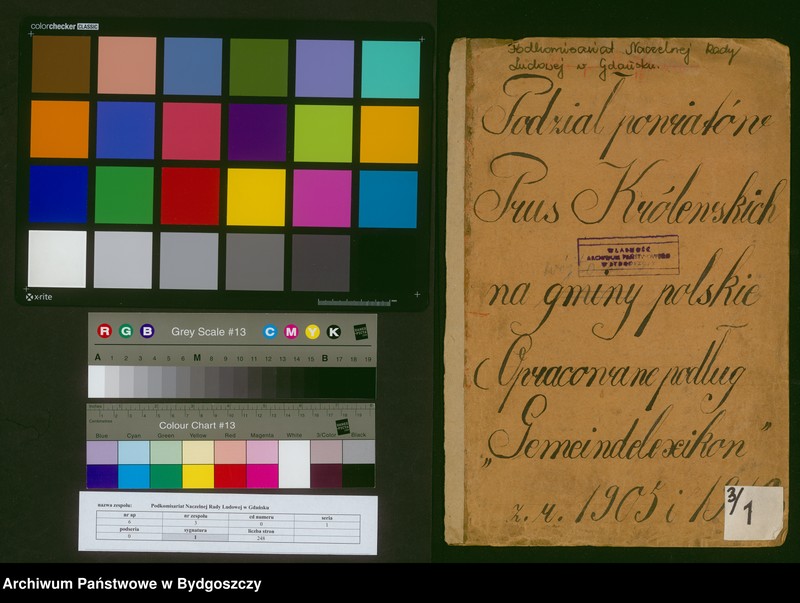 colorchecker CLASSIC
x-rite
R G B Grey Scale #13 C M Y K
A 1 2 3 4 5 6 M 8 9 10 11 12 13 14 15 B 17 18 19
Colour Chart #13
Blue Cyan Green Yellow Red Magenta White 3/Color Black
nazwa zespołu: Podkomisariat Naczelnej Rady Ludowej w Gdańsku
nr ap nr zespołu cd numeru seria
6 1 0 1
podseria sygnatura liczba stron
0 1 246
Podkomisariat Naczelnej Rady
Ludowej w Gdańsku.
Podział powiatów
Prus Królewskich
WŁASNOŚĆ
ARCHIWUM PAŃSTWOWEGO
W BYDGOSZCZY
na gminy polskie
Opracowane podług
„Gemeindelexikon”
z. r. 1905 i
3/1
Archiwum Państwowe w Bydgoszczy